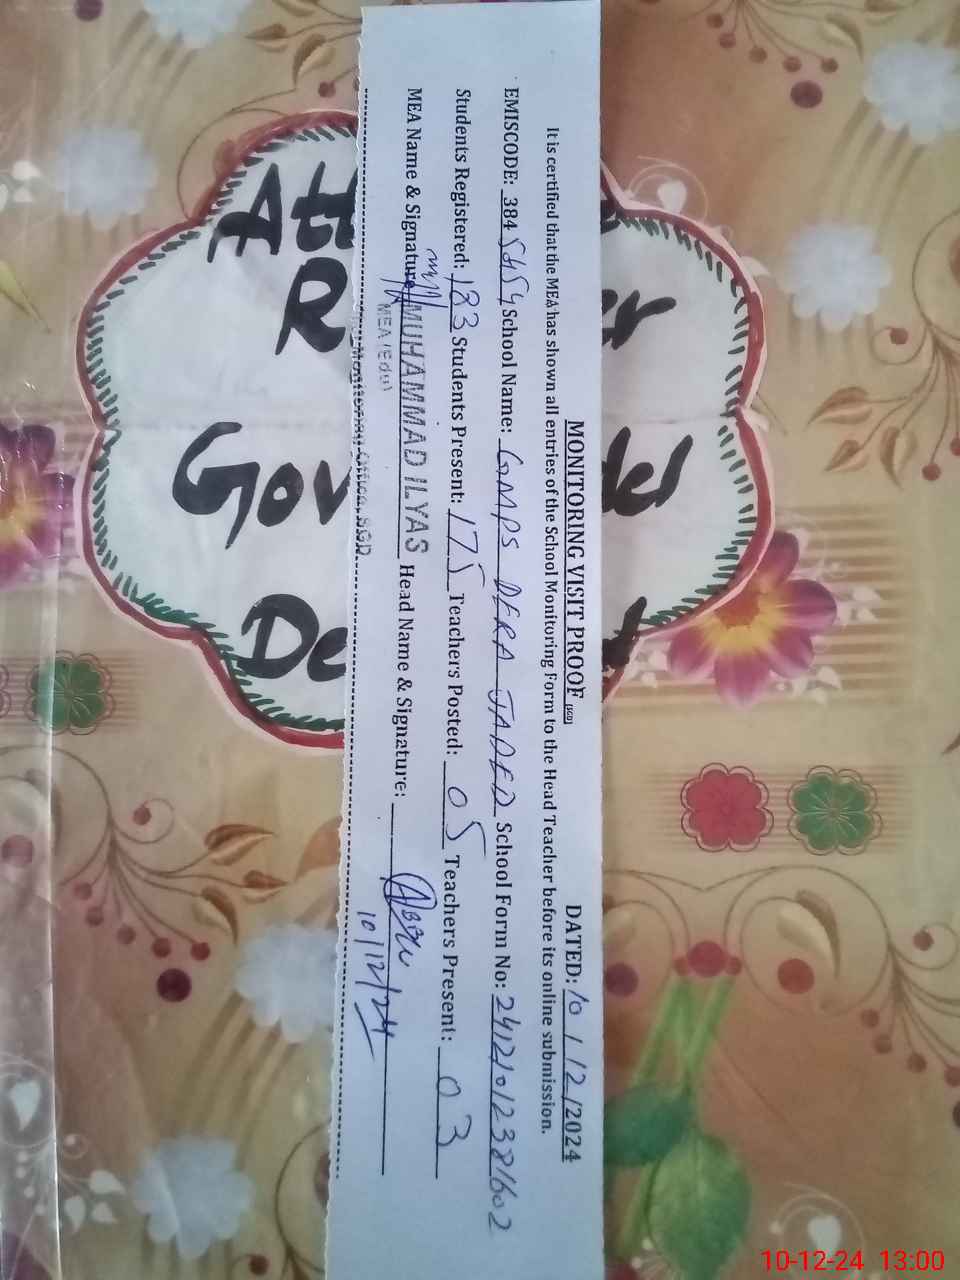 MONITORING VISIT PROOF (SGD) DATED: 10/12/2024
It is certified that the MEA has shown all entries of the School Monitoring Form to the Head Teacher before its online submission.
EMISCODE: 384 School Name: GMPS DERA JADED School Form No: 24121012381602
Students Registered: 183 Students Present: 175 Teachers Posted: 05 Teachers Present: 03
MEA Name & Signature MUHAMMAD ILYAS Head Name & Signature:
MEA (Edu) 10/12/24
Monitoring Office, SGD
Att
R
Gov
De
10-12-24 13:00